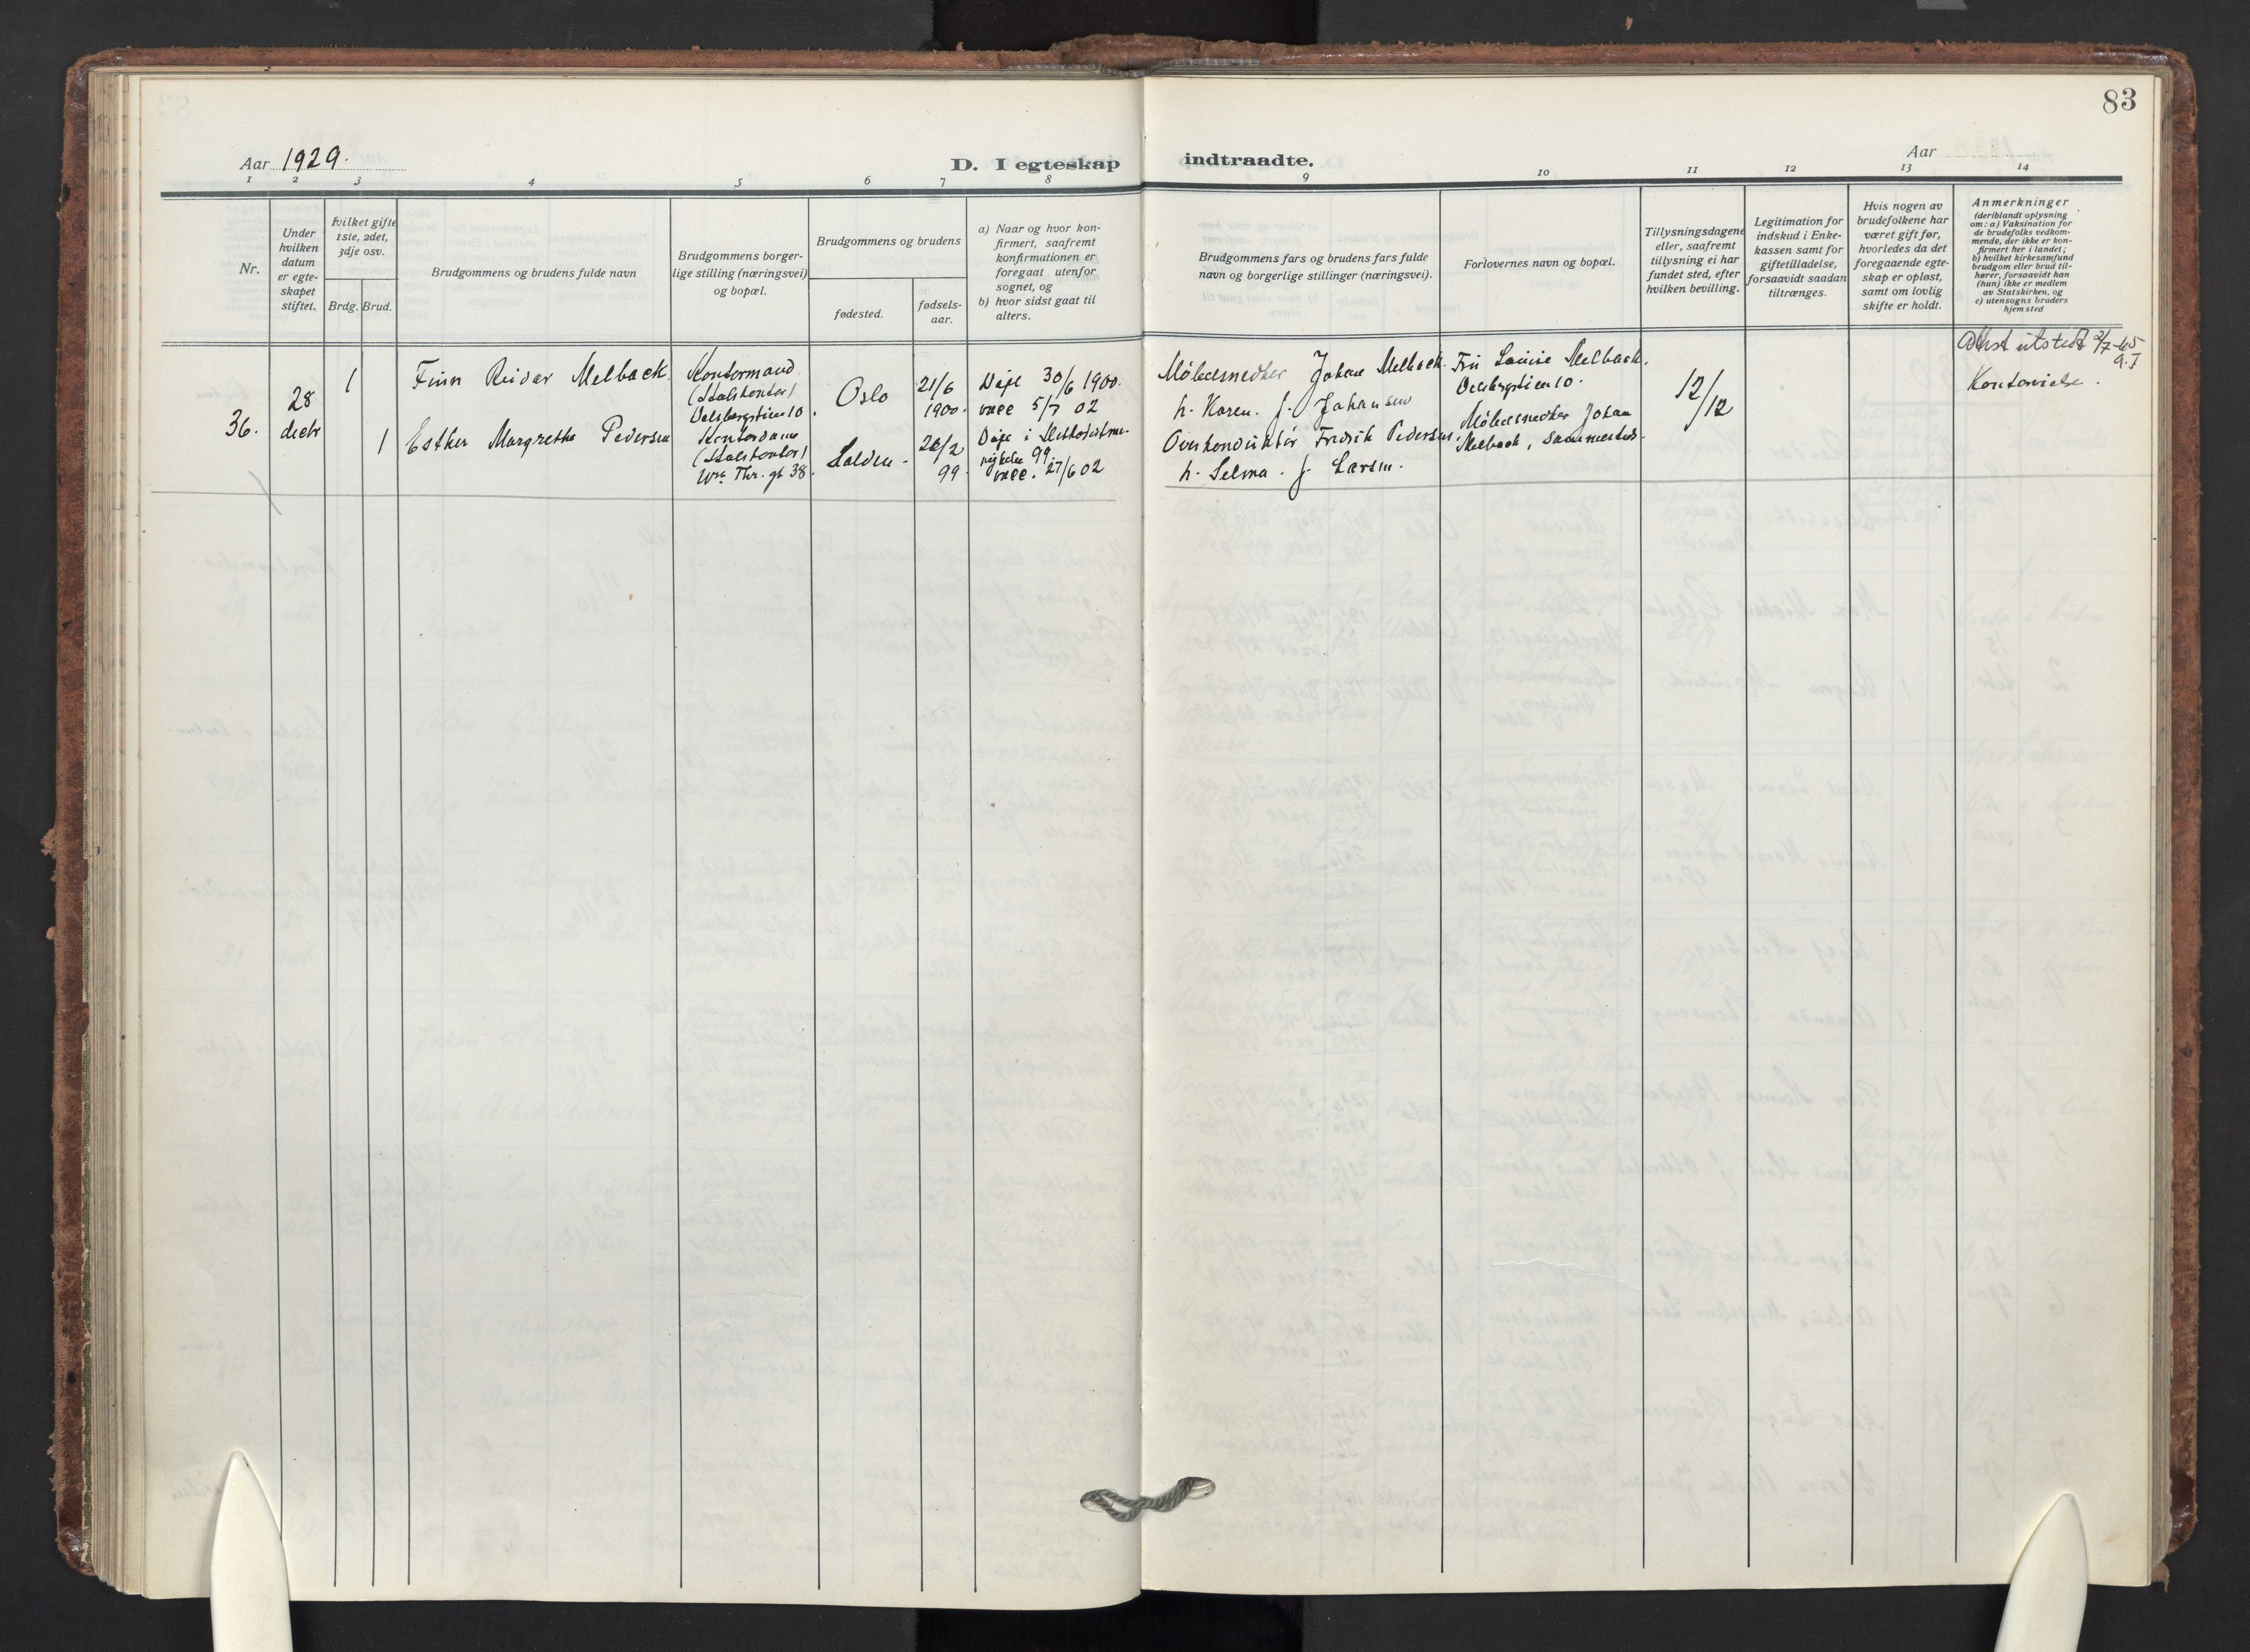 83
Aar 1929.
D. I egteskap
indtraadte.
Aar
1 2 3 4 5 6 7 8 9 10 11 12 13 14
Nr.
Under
hvilken
datum
er egte-
skapet
stiftet.
hvilket gifte
1ste, 2det,
3dje osv.
Brdg. Brud.
Brudgommens og brudens fulde navn
Brudgommens borger-
lige stilling (næringsvei)
og bopæl.
Brudgommens og brudens
fødested.
fødsels-
aar.
a) Naar og hvor kon-
firmert, saafremt
konfirmationen er
foregaat utenfor
sognet, og
b) hvor sidst gaat til
alters.
Brudgommens fars og brudens fars fulde
navn og borgerlige stillinger (næringsvei).
Forlovernes navn og bopæl.
Tillysningsdagene
eller, saafremt
tillysning ei har
fundet sted, efter
hvilken bevilling.
Legitimation for
indskud i Enke-
kassen samt for
giftetilladelse,
forsaavidt saadan
tiltrænges.
Hvis nogen av
brudefolkene har
været gift før,
hvorledes da det
foregaaende egte-
skap er opløst,
samt om lovlig
skifte er holdt.
Anmerkninger
(deriblandt oplysning
om: a) Vaksination for
de brudefolks vedkom-
mende, der ikke er kon-
firmert her i landet;
b) hvilket kirkesamfund
brudgom eller brud til-
hører, forsaavidt han
(hun) ikke er medlem
av Statskirken, og
c) utensogns bruders
hjemsted
36.
28
decbr
1
Finn Reidar Melback
Kontormand
Oslo
21/6
1900.
Døpt 30/6 1900.
vacc 5/7 02
1
Esther Margrethe Pedersen
Kontordame
Wm. Thr. gt 38.
Halden.
26/2
99.
Døpt i Methodist
99.
vacc. 27/6 02
Møbelsnedker Johan Melback.
h. Karen. f. Johansen
Overkonduktør Fredrik Pedersen,
h. Selma. f. Larsen.
Fru Louise Melback,
Møbelsnedker Johan
Melback, sammesteds.
12/12
Attest utstedt 3/7-45
Kontorvielse.